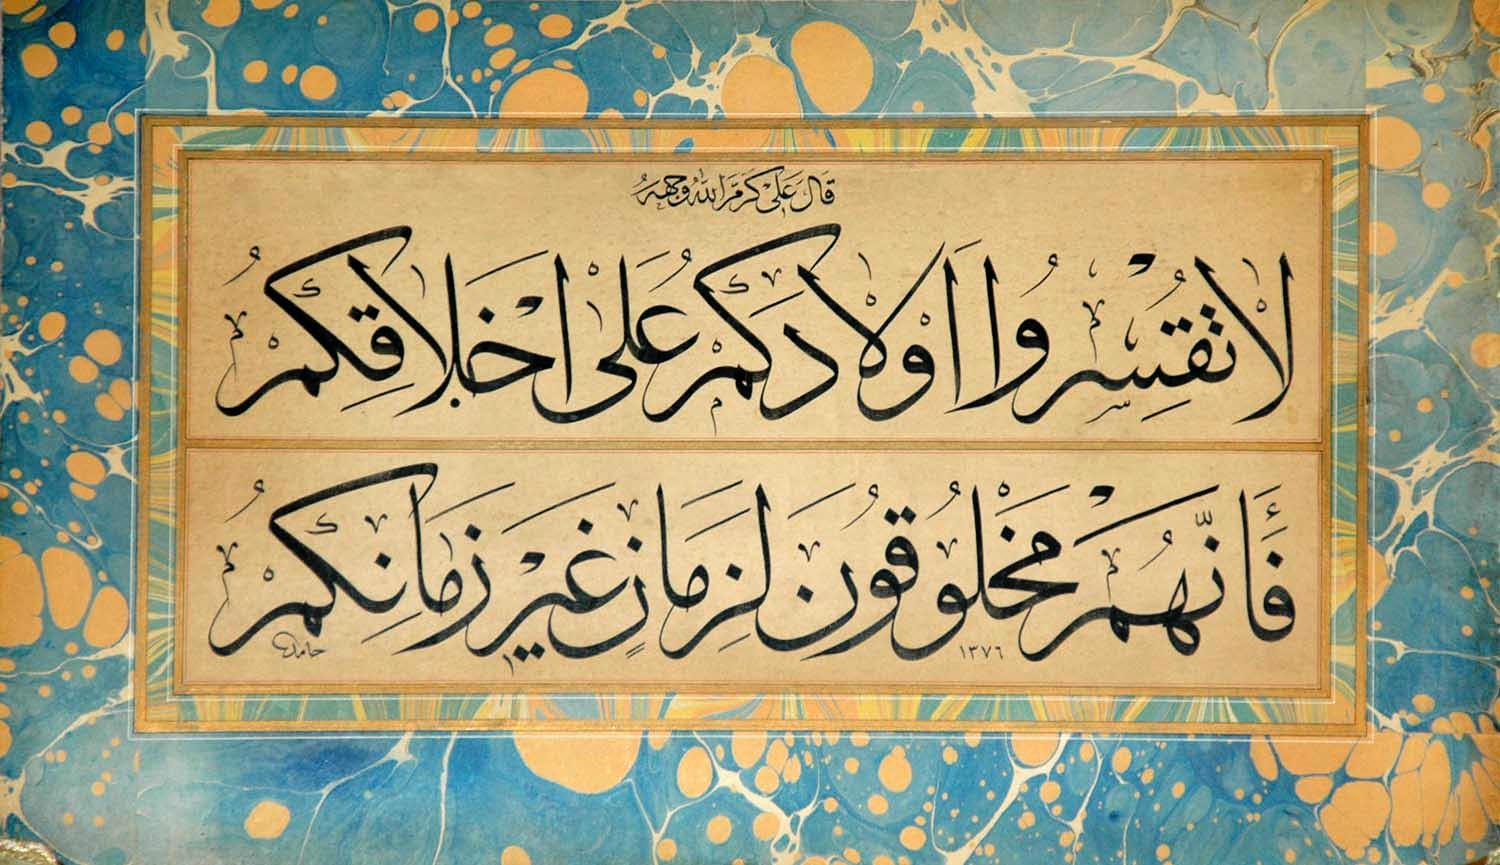 قَالَ عَلِى كَرَّمَ اللّٰهُ وَجْهَهُ
لَا تُقْسِرُوا اَوْلَادَكُمْ عَلٰى اَخْلَاقِكُمْ
فَأَنَّهُمْ مَخْلُوقُونَ لِزَمَانٍ غَيْرِ زَمَانِكُمْ
حامد ١٣٧٦